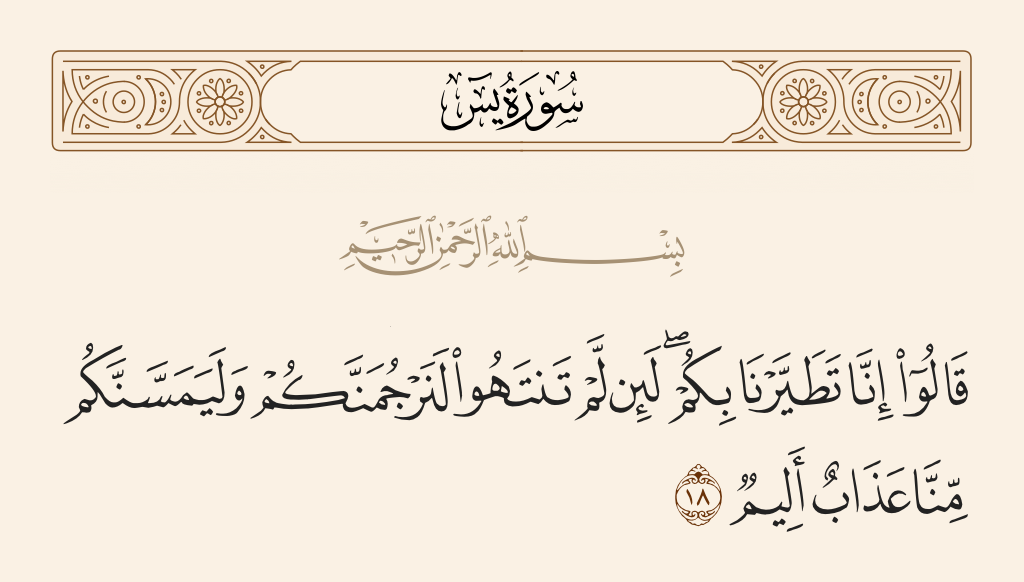 سُورَةُ يسٓ
بِسْمِ ٱللَّهِ ٱلرَّحْمَٰنِ ٱلرَّحِيمِ
قَالُوٓا۟ إِنَّا تَطَيَّرْنَا بِكُمْ ۖ لَئِن لَّمْ تَنتَهُوا۟ لَنَرْجُمَنَّكُمْ وَلَيَمَسَّنَّكُم
مِّنَّا عَذَابٌ أَلِيمٌ ١٨